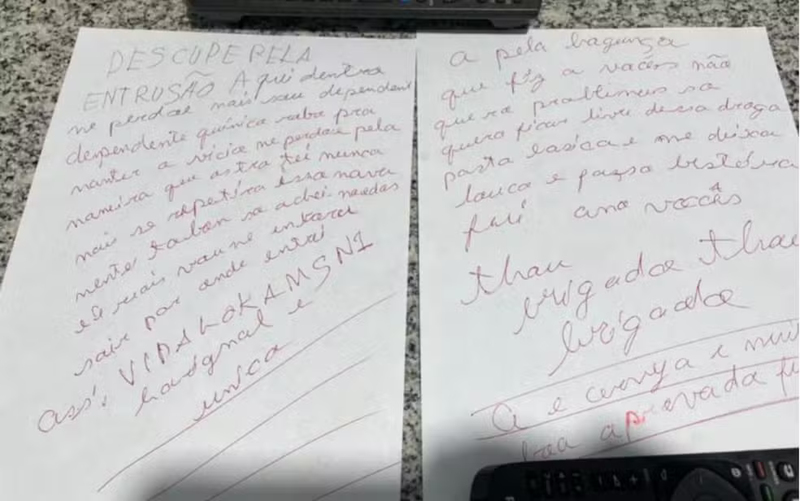 DESCUPE PELA
ENTRUSÃO Aqui dentra
me perdoe mais sou dependent
dependente quimica roba pra
manter a vicia me perdoie pela
maneira que astra fei nunca
mais se repetira essa nava
mente taben so achei moedas
e
sair por onde entrei
ass: VIDA LOKA MS N1
horignal e
unica
a pela bagunça
que fiz a vocês não
quero problemas so
quero ficar livre dessa droga
pasta basica e me deixa
louca e
fui ano vocês
thau
brigadoe thau
brigadoe
A e cerveja e mui
boa aprovada